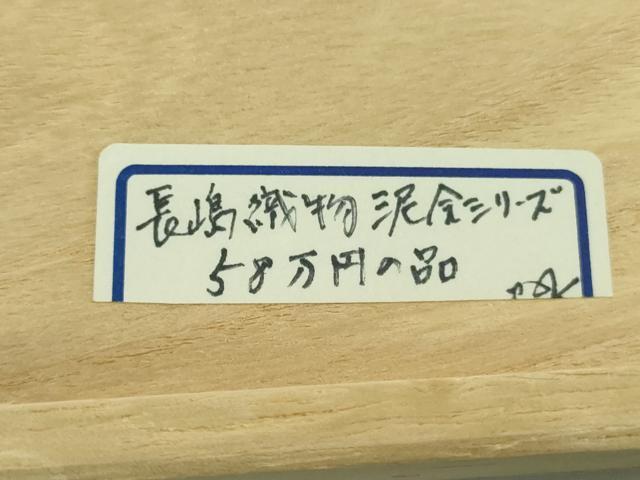 長嶋織物泥金シリーズ
58万円の品